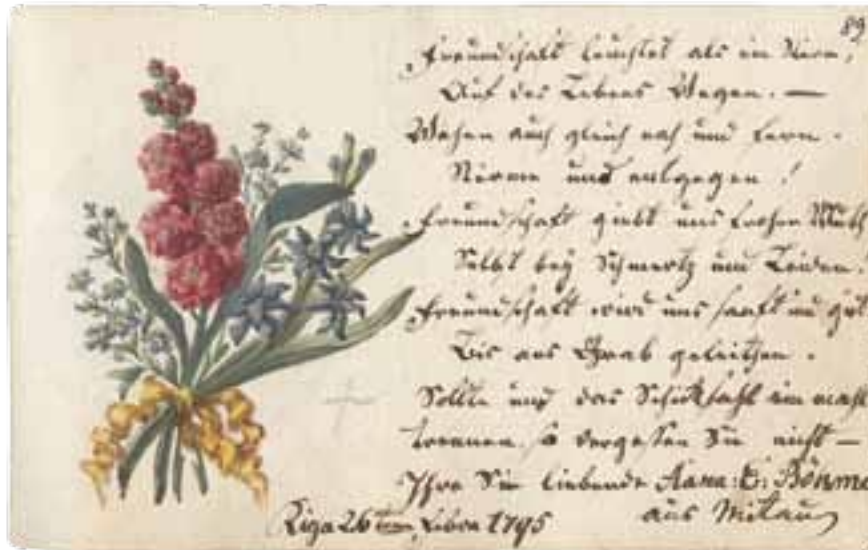 89
Freundschaft leuchtet als ein Stern,
Auf des Lebens Wegen. —
Wehen auch gleich nah und fern
Stürme uns entgegen!
Freundschaft giebt uns frohen Muth
Selbst bey Schmertz und Leiden!
Freundschaft wird uns sanft und gut
Bis ans Grab geleithen.
Sollte uns das Schicksahl einmahl
trennen so vergessen Sie nicht —
Ihre Sie liebende Anna: E:
aus Mitau
Riga 26 1795